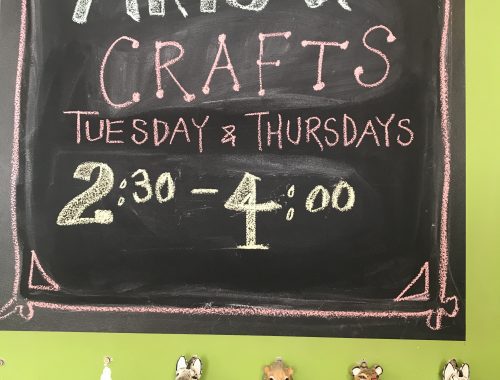 ARTS &
CRAFTS
TUESDAY & THURSDAYS
2:30 - 4:00